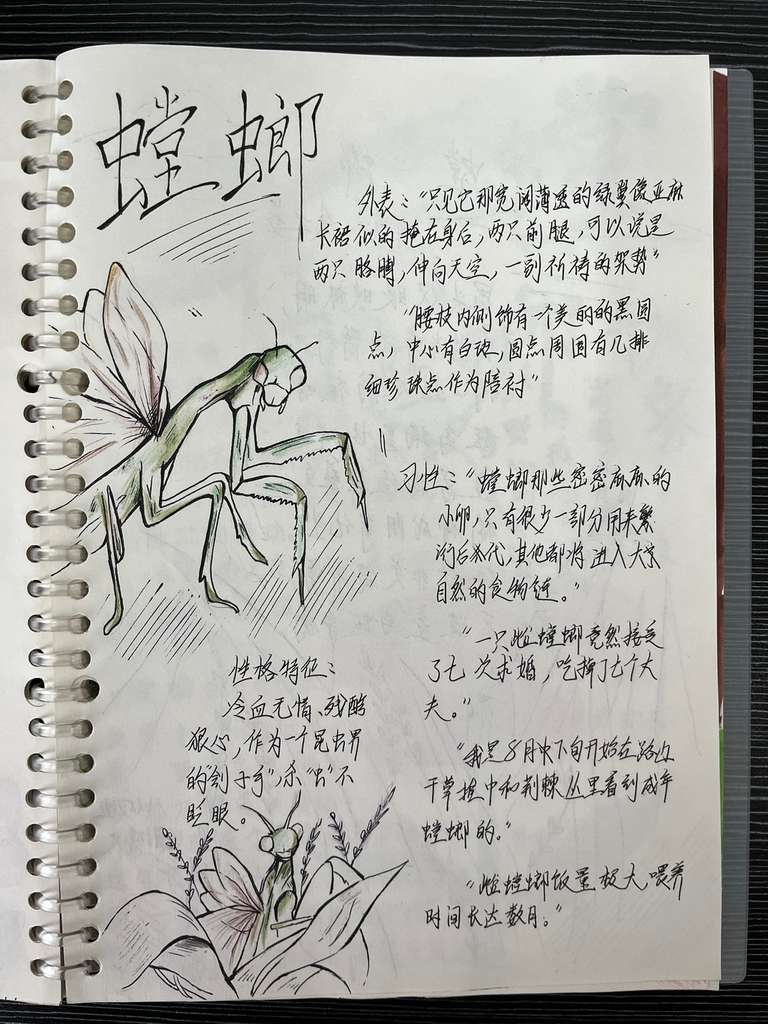 螳螂
外表："只见它那宽阔薄透的绿翼像亚麻
长裙似的掩在身后，两只前腿，可以说是
两只胳膊，伸向天空，一副祈祷的架势"
"腰肢内侧饰有一个美丽的黑圆
点，中心有白斑，圆点周围有几排
细珍珠点作为陪衬"
习性："螳螂那些密密麻麻的
小卵，只有很少一部分用来繁
衍后代，其他都将进入大
自然的食物链。"
"一只雌螳螂竟然接受
了七次求婚，吃掉了七个丈
夫。"
"我是8月中下旬开始在路边
干草堆中和荆棘丛里看到成年
螳螂的。"
"雌螳螂饭量极大，喂养
时间长达数月。"
性格特征：
冷血无情、残酷
狠心，作为一个昆虫界
的"刽子手"，杀"虫"不
眨眼。